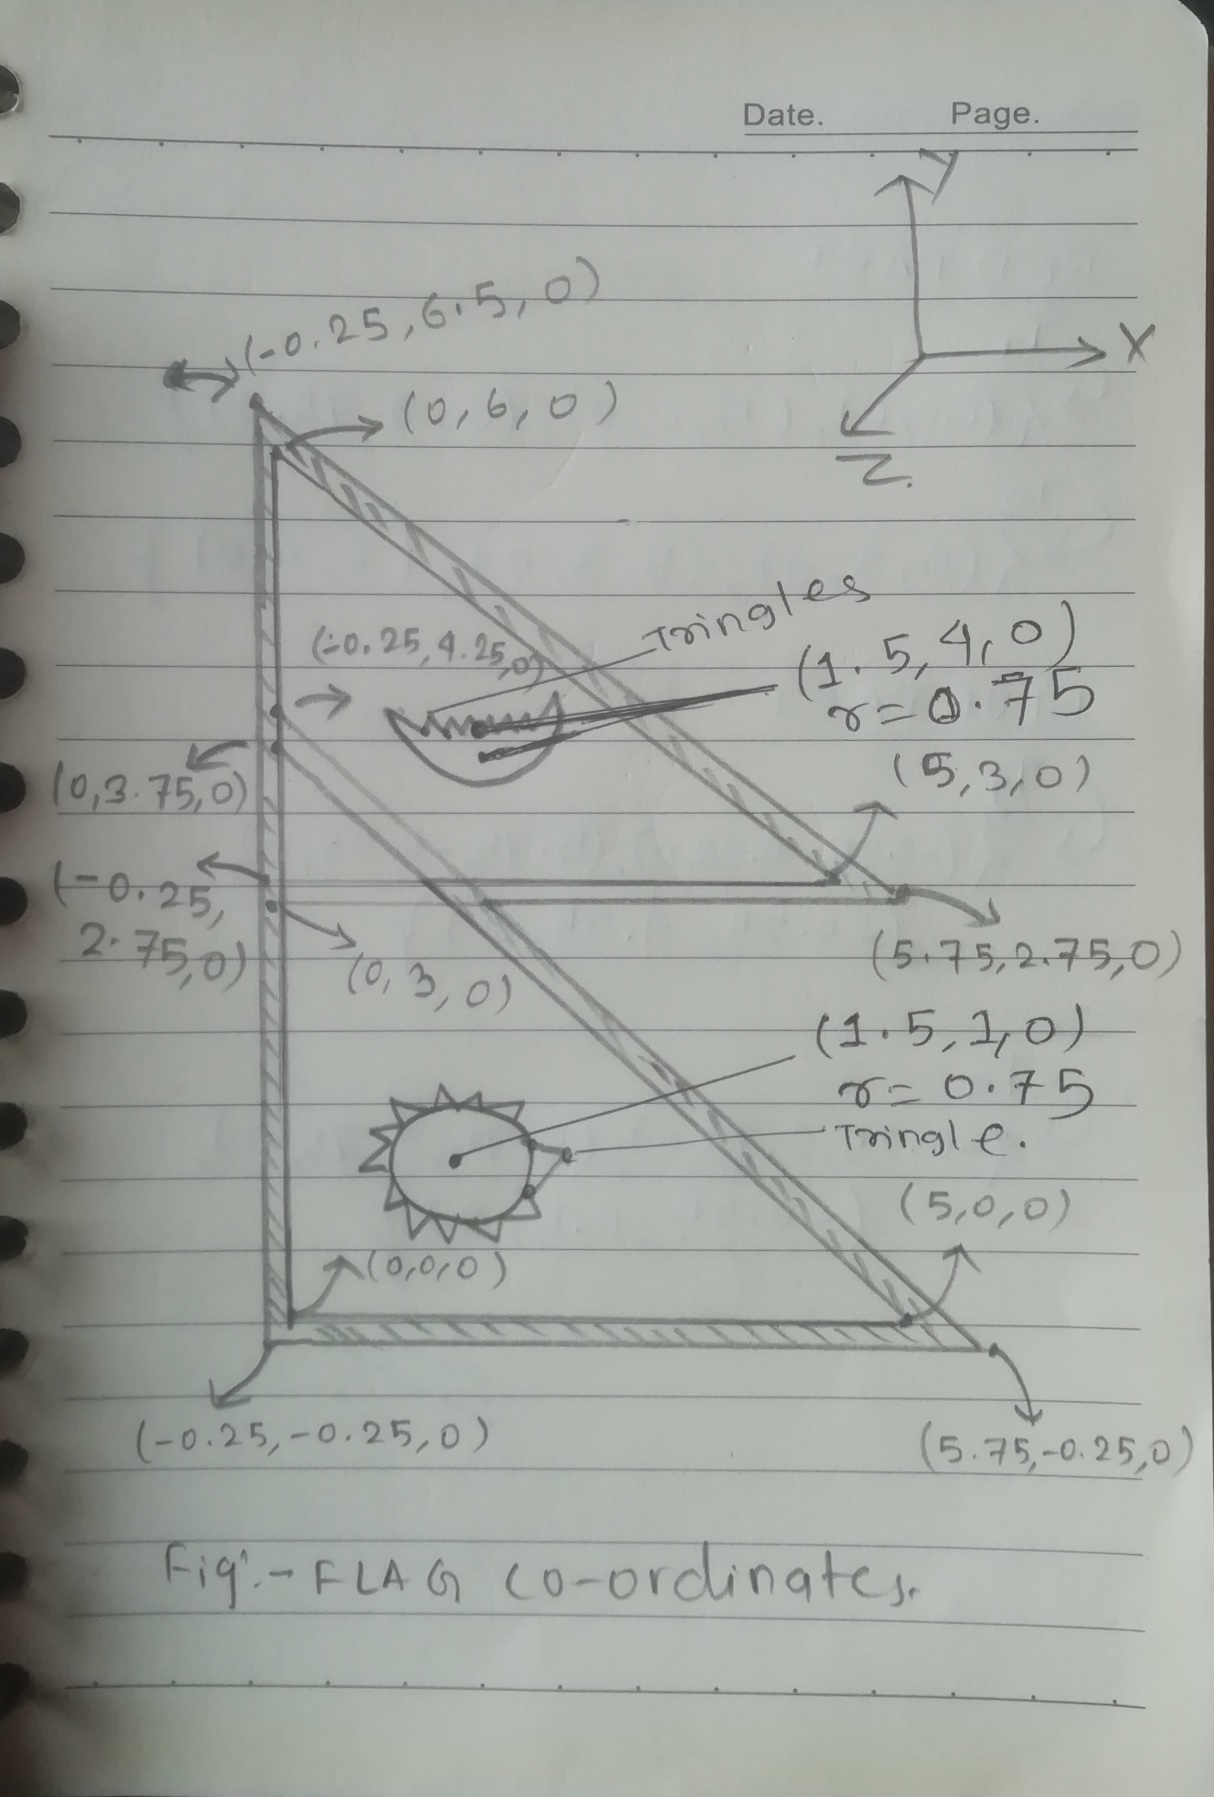 Date. Page.
y
X
Z.
(-0.25, 6.5, 0)
(0, 6, 0)
Tringles
(-0.25, 4.25, 0)
(1.5, 4, 0)
r = 0.75
(5, 3, 0)
(0, 3.75, 0)
(-0.25,
2.75, 0)
(0, 3, 0)
(5.75, 2.75, 0)
(1.5, 1, 0)
r = 0.75
Tringle.
(5, 0, 0)
(0, 0, 0)
(-0.25, -0.25, 0)
(5.75, -0.25, 0)
Fig:- FLAG CO-ordinates.